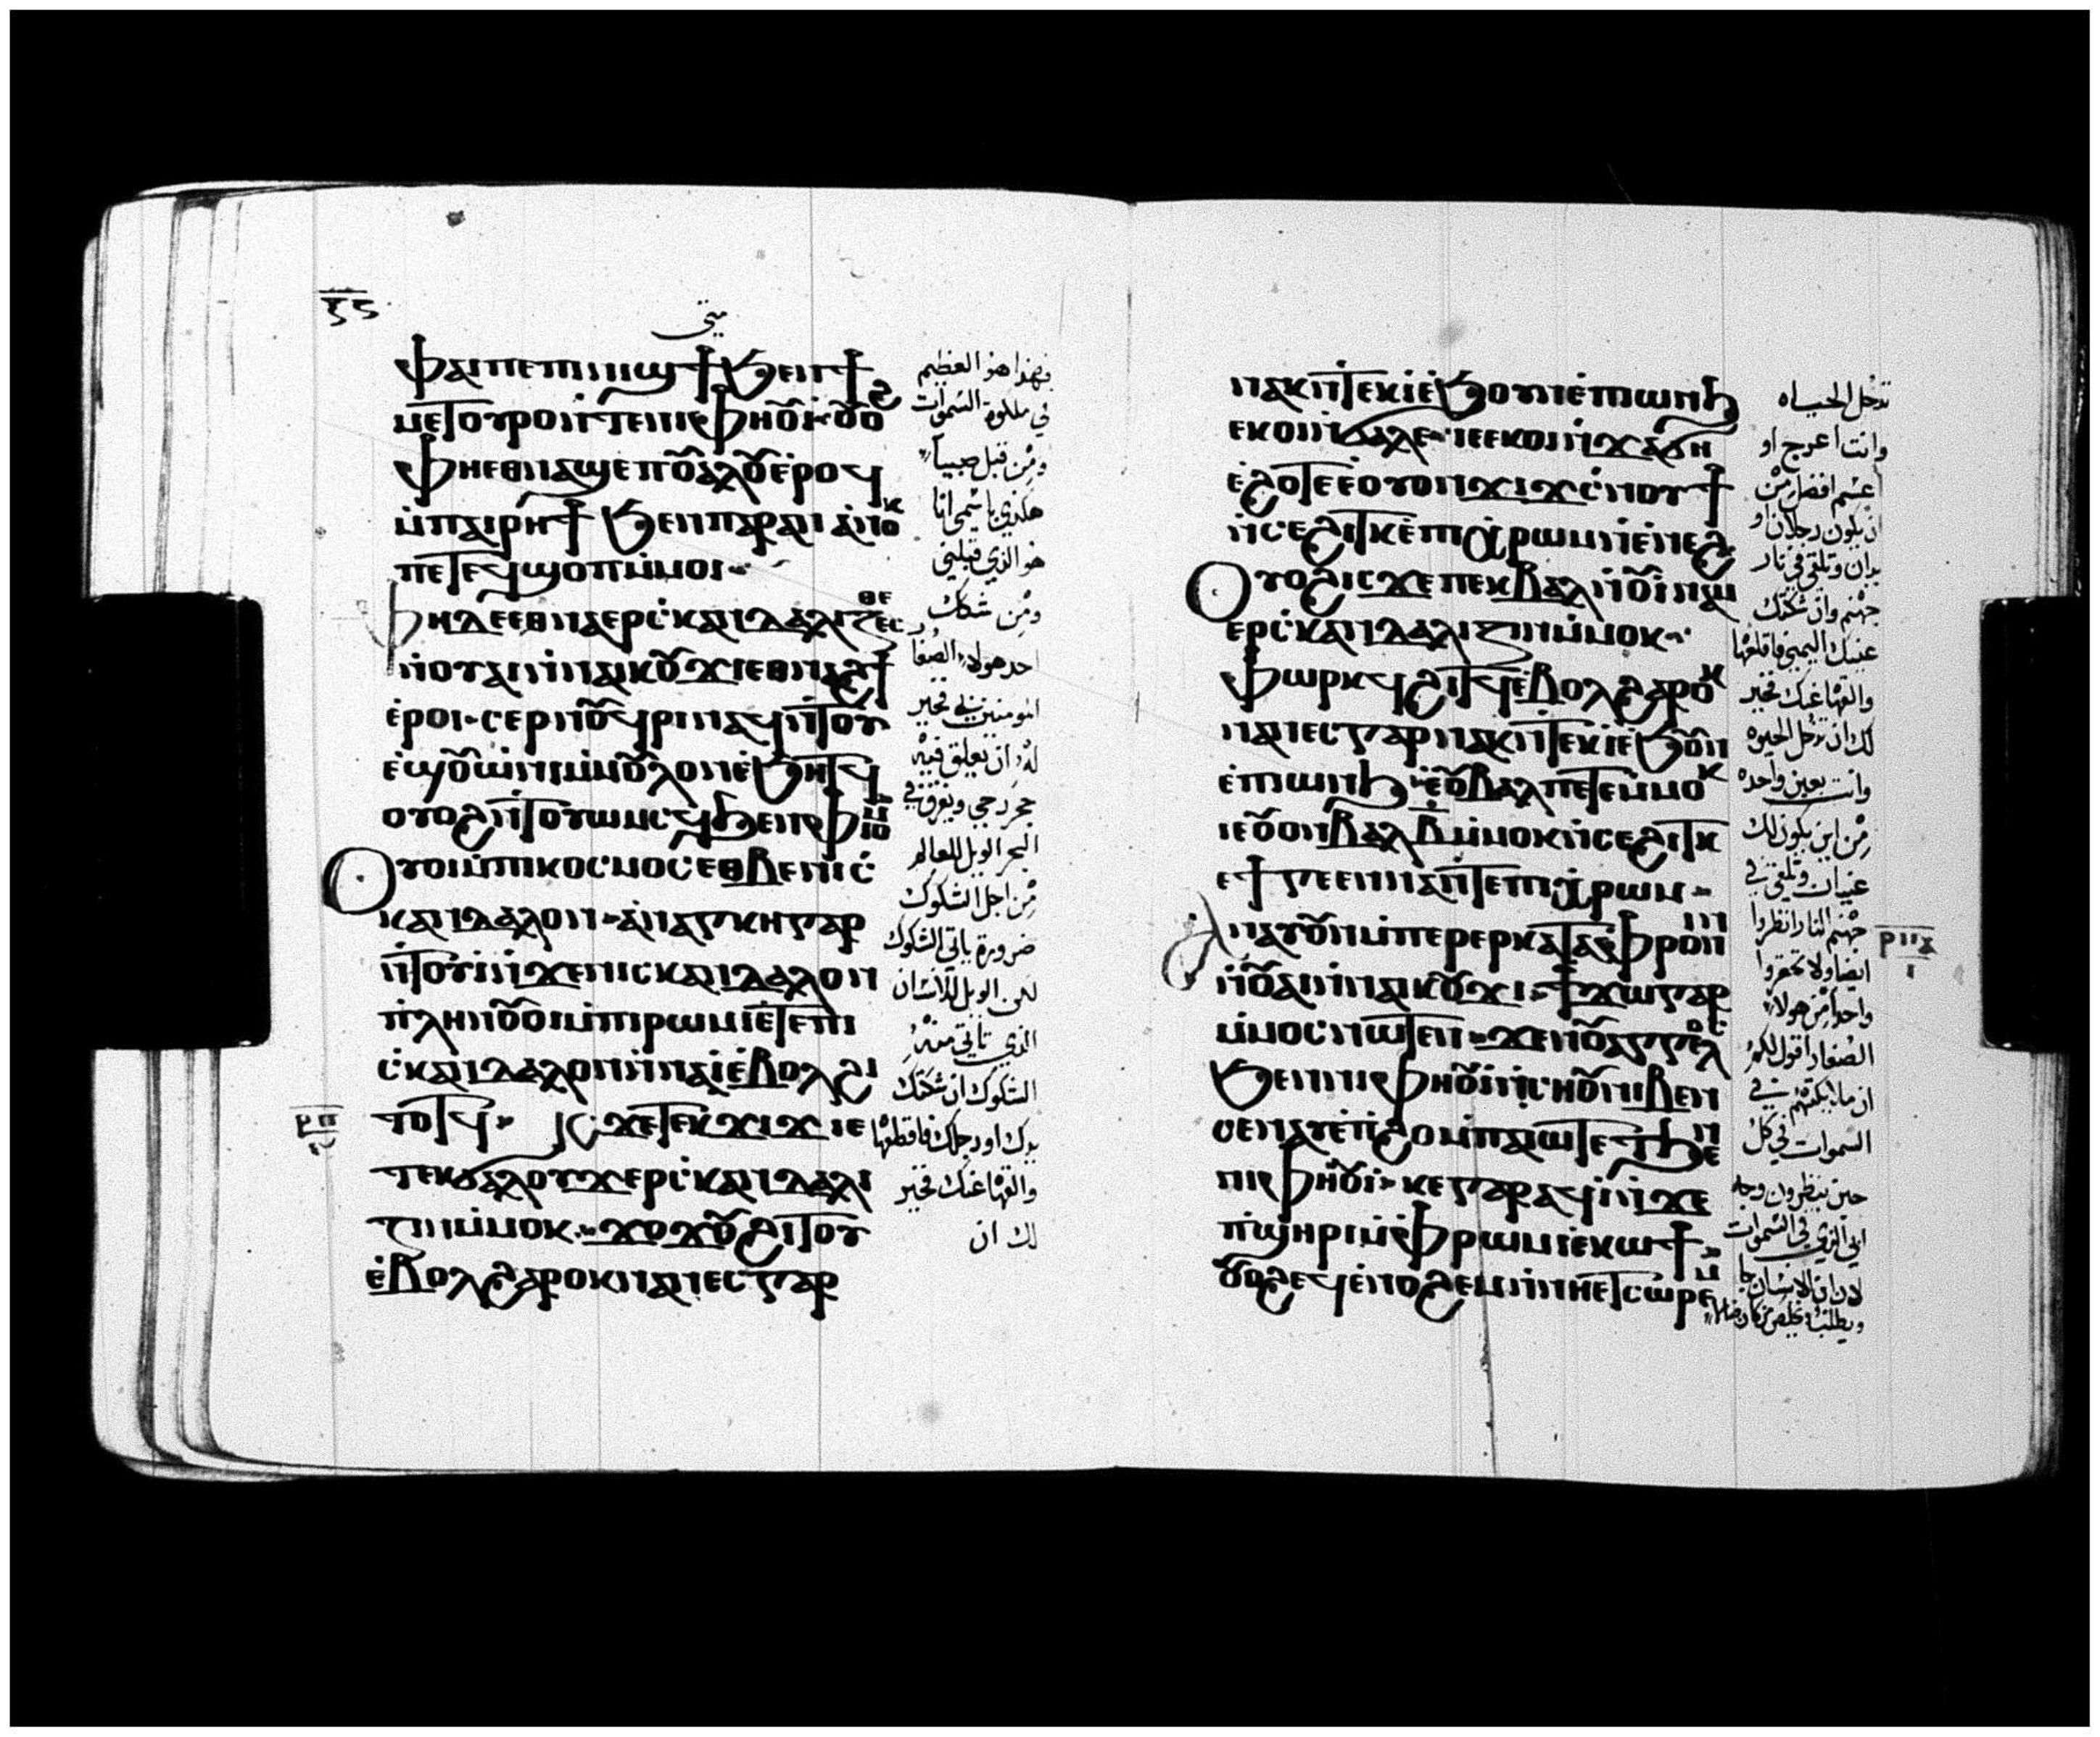 ⲝⲋ
متى
ⲫⲁⲓⲡⲉⲡⲓⲛⲓϣϯϧⲉⲛϯ
ⲙⲉⲧⲟⲩⲣⲟⲛ̀ⲧⲉⲛⲓⲫⲏⲟⲩⲓ ⲟⲩⲟϩ
ⲫⲏⲉⲑⲛⲁϣⲉⲡⲟⲩⲁⲗⲟⲩⲉ̀ⲣⲟϥ
ⲙ̀ⲡⲁⲓⲣⲏϯ ϧⲉⲛⲡⲁⲣⲁⲛ ⲁ̀ⲛⲟⲕ
ⲡⲉⲧⲉϥϣⲟⲡⲙ̀ⲙⲟⲓ
ⲫⲏⲇⲉⲉⲑⲛⲁⲉⲣⲥ̀ⲕⲁⲛⲇⲁⲗⲓⲍⲉⲥⲑⲉ
ⲛ̀ⲟⲩⲁⲓⲛ̀ⲛⲁⲓⲕⲟⲩϫⲓⲉⲑⲛⲁϩϯ
ⲉ̀ⲣⲟⲓ ⲥⲉⲣⲛⲟϥⲣⲓⲛⲁϥⲛ̀ⲧⲟⲩ
ⲉ̀ϣⲟⲩⲱ̀ⲛⲓⲙ̀ⲙⲟⲩⲗⲟⲛⲉ̀ϧⲏⲧϥ
ⲟⲩⲟϩⲛ̀ⲧⲟⲩⲱⲙⲥϥϧⲉⲛⲫⲓⲟⲙ
ⲟⲩⲟⲓⲙ̀ⲡⲓⲕⲟⲥⲙⲟⲥⲉⲑⲃⲉⲛⲓⲥ̀
ⲕⲁⲛⲇⲁⲗⲟⲛ ⲁ̀ⲛⲁⲅⲕⲏⲅⲁⲣ
ⲛ̀ⲧⲟⲩⲓ̀ⲛ̀ϫⲉⲛⲓⲥⲕⲁⲛⲇⲁⲗⲟⲛ
ⲡ̀ⲗⲏⲛⲟⲩⲟⲓⲙ̀ⲡⲓⲣⲱⲙⲓⲉ̀ⲧⲉⲛⲓ
ⲥ̀ⲕⲁⲛⲇⲁⲗⲟⲛⲛ̀ⲛⲁⲓ̀ⲉ̀ⲃⲟⲗϩⲓ
ⲧⲟⲧϥ ⲓⲥϫⲉⲧⲉⲕϫⲓϫ ⲓⲉ
ⲧⲉⲕϭⲁⲗⲟⲩϫⲉⲣⲥ̀ⲕⲁⲛⲇⲁⲗⲓ
ⲍⲓⲛⲙ̀ⲙⲟⲕ ϫⲟϫⲟⲩϩⲓⲧⲟⲩ
ⲉ̀ⲃⲟⲗϩⲁⲣⲟⲕⲛⲁⲛⲉⲥⲅⲁⲣ
ⲣⲡ
فهذا هو العظيم
في ملكوة السموات
ومن قبل صبيا
هكذي باسمي انا
هو الذي قبلني
ومن شكك
احد هولاء الصغا
المومنين بي فخير
له ان يعلق فيه
حجر رحى ويغرق في
البحر الويل للعالم
من اجل الشكوك
ضرورة ياتي الشكوك
لكن الويل للانسان
الذي تاتي منه
الشكوك ان شكتك
يدك او رجلك فاقطعها
والقها عنك فخير
لك ان
ⲛⲁⲕⲛ̀ⲧⲉⲕⲓ̀ⲉ̀ϧⲟⲩⲛⲉ̀ⲡⲱⲛϧ
ⲉⲕⲟⲓⲛ̀ϭⲁⲗⲉ ⲓⲉⲉⲕⲟⲓⲛ̀ϫⲁϭⲏ
ⲉ̀ϩⲟⲧⲉⲉ̀ⲟⲩⲟⲛϫⲓϫⲥ̀ⲛⲟⲩϯ
ⲛ̀ⲥⲉϩⲓⲧⲕⲉ̀ⲡⲓⲭ̀ⲣⲱⲙⲛ̀ⲉ̀ⲛⲉϩ
ⲟⲩⲟϩⲓⲥϫⲉⲡⲉⲕⲃⲁⲗⲛ̀ⲟⲩⲓ̀ⲛⲁⲙ
ⲉⲣⲥ̀ⲕⲁⲛⲇⲁⲗⲓⲍⲓⲛⲙ̀ⲙⲟⲕ
ⲫⲱⲣⲕϥϩⲓⲧϥⲉ̀ⲃⲟⲗϩⲁⲣⲟⲕ
ⲛⲁⲛⲉⲥⲅⲁⲣⲛⲁⲕⲛ̀ⲧⲉⲕⲓ̀ⲉ̀ϧⲟⲩⲛ
ⲉ̀ⲡⲱⲛϧ ⲉ̀ⲟⲩⲃⲁⲗⲡⲉⲧⲉⲙ̀ⲙⲟⲕ
ⲓⲉⲟⲩⲟⲛⲃⲁⲗⲃ̅ⲙ̀ⲙⲟⲕⲛ̀ⲥⲉϩⲓⲧⲕ
ⲉϯⲅⲉⲉⲛⲛⲁⲛ̀ⲧⲉⲡⲓⲭ̀ⲣⲱⲙ
ⲁⲛⲁⲩⲟⲩⲛⲙ̀ⲡⲉⲣⲉⲣⲕⲁⲧⲁⲫⲣⲟⲛⲓⲛ
ⲛ̀ⲟⲩⲁⲓⲛ̀ⲛⲁⲓⲕⲟⲩϫⲓ ϯϫⲱⲅⲁⲣ
ⲙ̀ⲙⲟⲥⲛⲱⲧⲉⲛ ϫⲉⲛⲟⲩⲁⲅⲅⲉⲗⲟⲥ
ϧⲉⲛⲛⲓⲫⲏⲟⲩⲓ̀ⲛ̀ⲥⲏⲟⲩⲛⲓⲃⲉⲛ
ⲥⲉⲛⲁⲩⲉ̀ⲡ̀ϩⲟⲙⲡⲁⲓⲱⲧⲉⲧϧⲉⲛ
ⲛⲓⲫⲏⲟⲩⲓ ⲕⲉⲅⲁⲣⲁϥⲓ̀ⲛ̀ϫⲉ
ⲡ̀ϣⲏⲣⲓⲙ̀ⲫⲣⲱⲙⲓⲉ̀ⲕⲱϯ
ⲟⲩⲟϩⲉϥⲉ̀ⲛⲟϩⲉⲙⲛ̀ⲛⲏⲉⲧⲥⲱⲣⲉⲙ
تدخل الحياه
وانت اعرج او
اعسم افضل من
ان يكون رجلان او
يدان وتلقى في نار
جهنم وان شكتك
عينك اليمنى فاقلعها
والقها عنك فخير
لك ان تدخل الحيوه
وانت بعين واحده
من اين يكون لك
عينان وتلقى في
جهنم النار انظروا
ايضا ولا تحقروا
واحدا من هولاء
الصغار اقول لكم
ان ملايكتهم في
السموات في كل
حين ينظرون وجه
ابي الذي في السموات
لان ابن الانسان جا